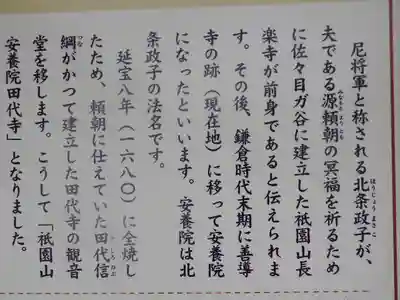 尼将軍と称される北条政子が、
夫である源頼朝の冥福を祈るため
に佐々目ガ谷に建立した祇園山長
楽寺が前身であると伝えられま
す。その後、鎌倉時代末期に善導
寺の跡（現在地）に移って安養院
になったといいます。安養院は北
条政子の法名です。
延宝八年（一六八〇）に全焼し
たため、頼朝に仕えていた田代信
綱がかつて建立した田代寺の観音
堂を移します。こうして「祇園山
安養院田代寺」となりました。